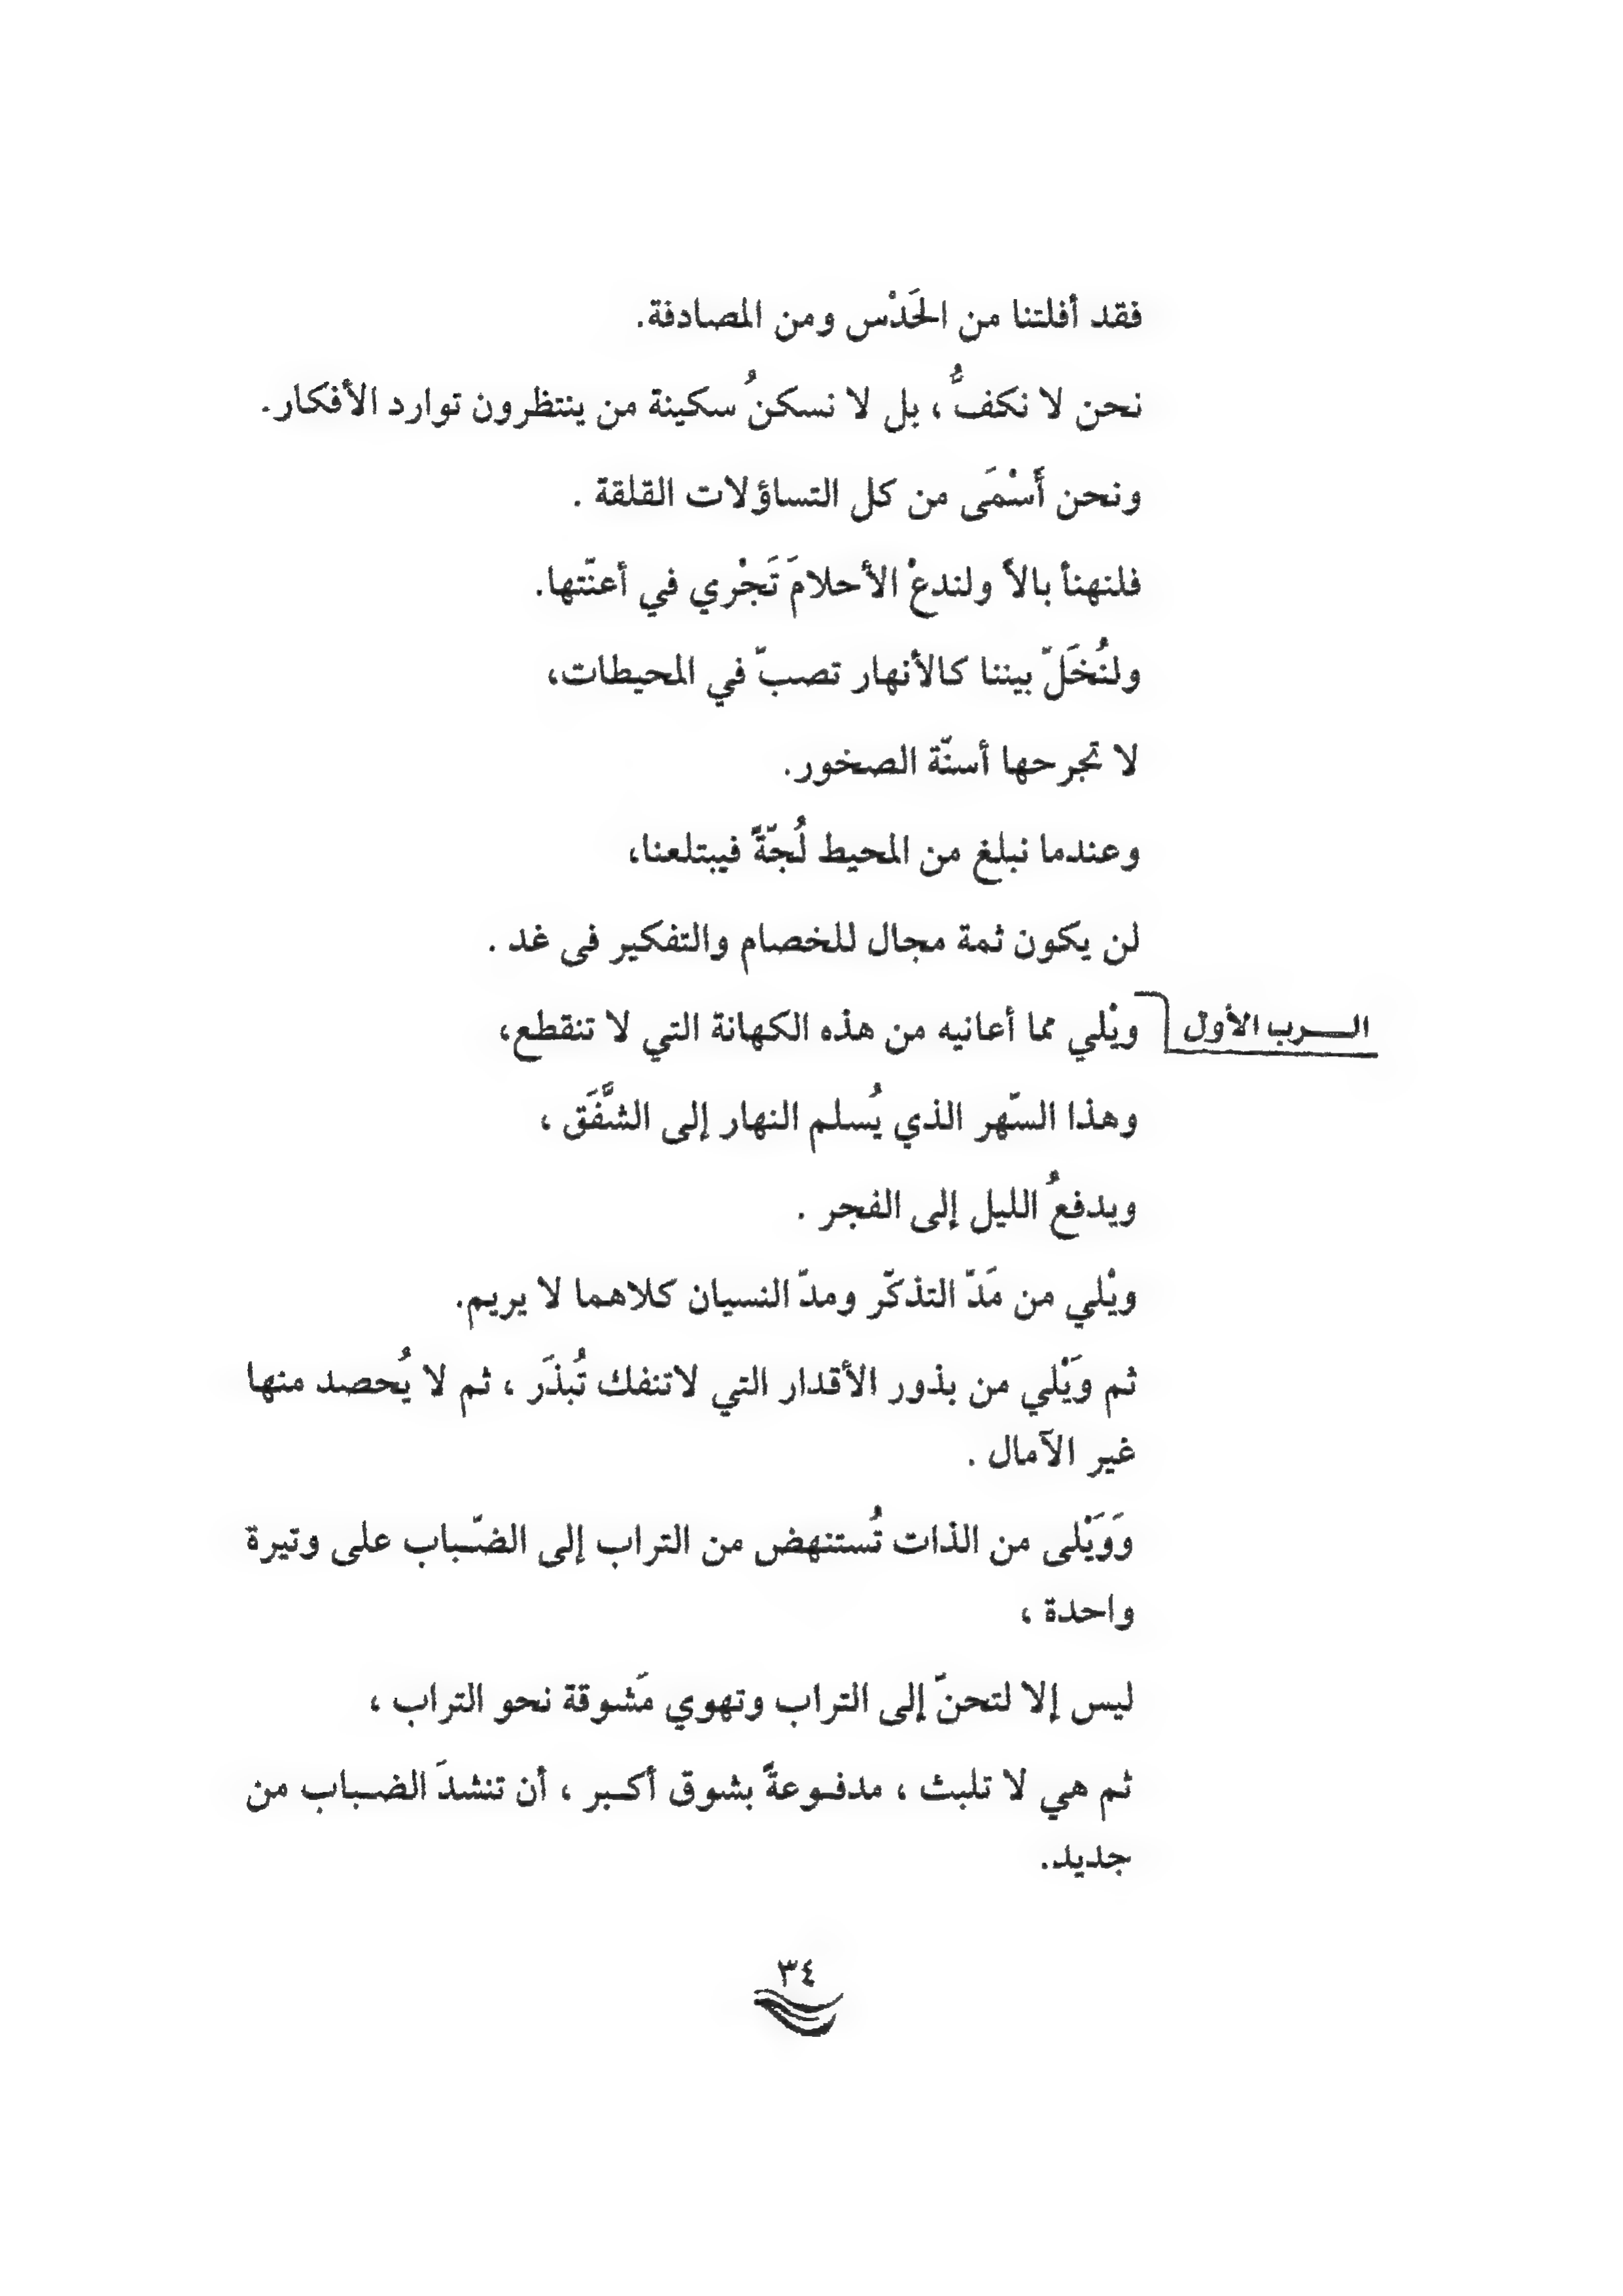 فقد أفلتنا من الحَدْس ومن المصادفة.
نحن لا نكفُّ ، بل لا نسكنُ سكينة من ينتظرون توارد الأفكار.
ونحن أَسْمَى من كل التساؤلات القلقة .
فلنهنأ بالاً ولندعْ الأحلامَ تَجْري في أعنّتها.
ولنُخَلّ بيننا كالأنهار تصبّ في المحيطات،
لا تجرحها أسنّة الصخور.
وعندما نبلغ من المحيط لُجّةً فيبتلعنا،
لن يكون ثمة مجال للخصام والتفكير فى غد .
الـــرب الأول
ويْلي مما أعانيه من هذه الكهانة التي لا تنقطع،
وهذا السّهر الذي يُسلم النهار إلى الشَّفَق ،
ويدفعُ الليل إلى الفجر .
ويْلي من مَدّ التذكّر ومدّ النسيان كلاهما لا يريم.
ثم وَيْلي من بذور الأقدار التي لاتنفك تُبذَر ، ثم لا يُحصد منها
غير الآمال .
وَوَيْلى من الذات تُستنهض من التراب إلى الضّـباب على وتيرة
واحدة ،
ليس إلا لتحنّ إلى التراب وتهوي مَشوقة نحو التراب ،
ثم هي لا تلبث ، مدفـوعةً بشوق أكـبر ، أن تنشدَ الضـباب من
جديد.
٣٤